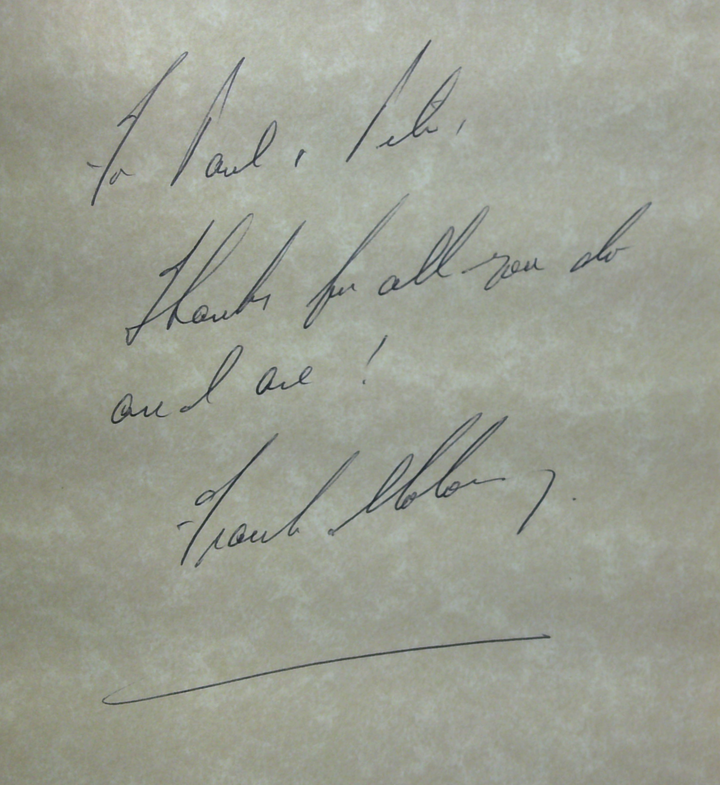 To Paul, Pete,
Thanks for all you do
and are!
Frank